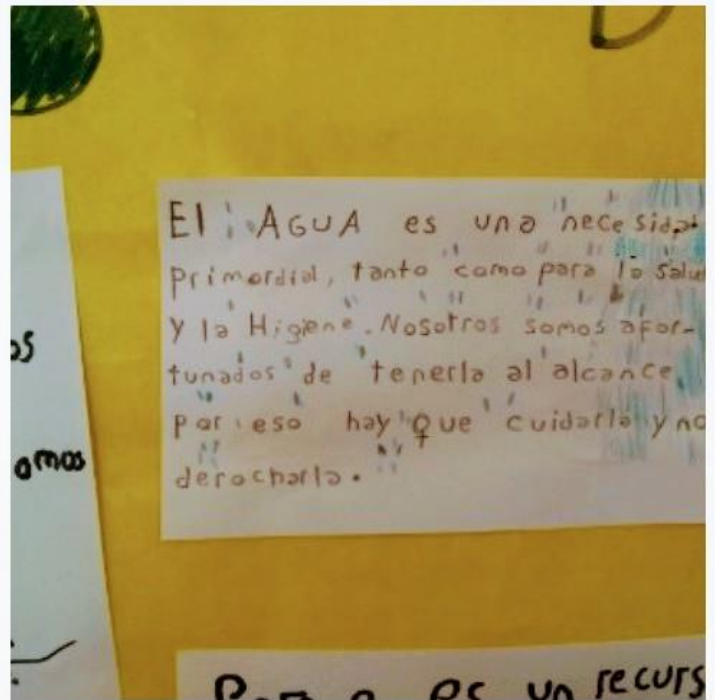 D
os
amos
El AGUA es una necesidad
primordial, tanto como para la salu
y la Higiene. Nosotros somos afor-
tunados de tenerla al alcance,
por eso hay que cuidarla y no
derocharla.
es un recurs